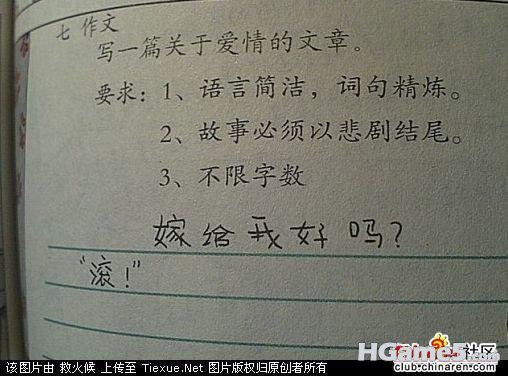 七 作文
写一篇关于爱情的文章。
要求：1、语言简洁，词句精炼。
2、故事必须以悲剧结尾。
3、不限字数
嫁给我好吗？
“滚！”
HGame5.com
社区
club.chinaren.com
该图片由 救火候 上传至 Tiexue.Net 图片版权归原创者所有